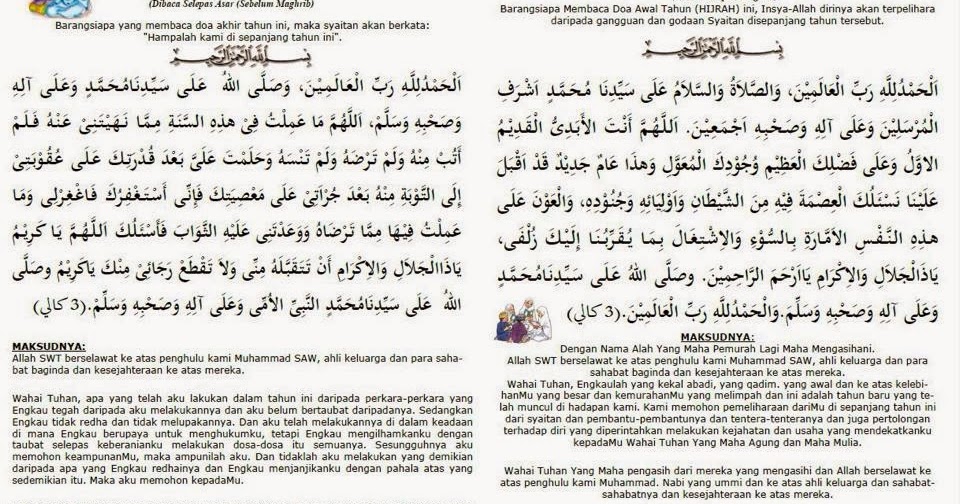 (Dibaca Selepas Asar (Sebelum Maghrib)
Barangsiapa yang membaca doa akhir tahun ini, maka syaitan akan berkata:
"Hampalah kami di sepanjang tahun ini".
بِسْمِ اللهِ الرَّحْمٰنِ الرَّحِيْمِ
اَلْحَمْدُلِلَّهِ رَبِّ الْعَالَمِيْنَ، وَصَلَّى اللهُ عَلَى سَيِّدِنَامُحَمَّدٍ وَعَلَى آلِهِ
وَصَحْبِهِ وَسَلَّمْ، اَللَّهُمَّ مَا عَمِلْتُ فِيْ هذِهِ السَّنَةِ مِمَّا نَهَيْتَنِيْ عَنْهُ فَلَمْ
أَتُبْ مِنْهُ وَلَمْ تَرْضَهُ وَلَمْ تَنْسَهُ وَحَلَمْتَ عَلَيَّ بَعْدَ قُدْرَتِكَ عَلَى عُقُوْبَتِيْ
إِلَى التَّوْبَةِ مِنْهُ بَعْدَ جُرْأَتِيْ عَلَى مَعْصِيَتِكَ فَإِنِّى أَسْتَغْفِرُكَ فَاغْفِرْلِى وَمَا
عَمِلْتُ فِيْهَا مِمَّا تَرْضَاهُ وَوَعَدْتَنِى عَلَيْهِ الثَّوَابَ فَأَسْئَلُكَ اللَّهُمَّ يَا كَرِيْمُ
يَاذَاالْجَلاَلِ وَالْإِكْرَامِ أَنْ تَتَقَبَّلَهُ مِنِّى وَلاَ تَقْطَعْ رَجَائِيْ مِنْكَ يَاكَرِيْمُ وصَلَّى
اللهُ عَلَى سَيِّدِنَامُحَمَّدٍ النَّبِيِّ الأُمِّى وَعَلَى آلِهِ وَصَحْبِهِ وَسَلَّمْ.(3 كالي)
MAKSUDNYA:
Allah SWT berselawat ke atas penghulu kami Muhammad SAW, ahli keluarga dan para saha-
bat baginda dan kesejahteraan ke atas mereka.
Wahai Tuhan, apa yang telah aku lakukan dalam tahun ini daripada perkara-perkara yang
Engkau tegah daripada aku melakukannya dan aku belum bertaubat daripadanya. Sedangkan
Engkau tidak redha dan tidak melupakannya. Dan aku telah melakukannya di dalam keadaan
di mana Engkau berupaya untuk menghukumku, tetapi Engkau mengilhamkanku dengan
taubat selepas keberanianku melakukan dosa-dosa itu semuanya. Sesungguhnya aku
memohon keampunanMu, maka ampunilah aku. Dan tidaklah aku melakukan yang demikian
daripada apa yang Engkau redhainya dan Engkau menjanjikanku dengan pahala atas yang
sedemikian itu. Maka aku memohon kepadaMu.
Barangsiapa Membaca Doa Awal Tahun (HIJRAH) ini, Insya-Allah dirinya akan terpelihara
daripada gangguan dan godaan Syaitan disepanjang tahun tersebut.
بِسْمِ اللهِ الرَّحْمٰنِ الرَّحِيْمِ
اَلْحَمْدُلِلَّهِ رَبِّ الْعَالَمِيْنَ، وَالصَّلاَةُ وَالسَّلاَمُ عَلَى سَيِّدِنَا مُحَمَّدٍ اَشْرَفِ
الْمُرْسَلِيْنَ وَعَلَى آلِهِ وَصَحْبِهِ اَجْمَعِيْنَ. اَللَّهُمَّ أَنْتَ الأَبَدِىُّ الْقَدِيْمُ
الاَوَّلُ وَعَلَى فَضْلِكَ الْعَظِيْمِ وَجُوْدِكَ الْمُعَوَّلِ وَهذَا عَامٌ جَدِيْدٌ قَدْ اَقْبَلَ
عَلَيْنَا نَسْئَلُكَ الْعِصْمَةَ فِيْهِ مِنَ الشَّيْطَانِ وَاَوْلِيَائِهِ وَجُنُوْدِهِ، وَالْعَوْنَ عَلَى
هذِهِ النَّفْسِ الْاَمَّارَةِ بِالسُّوْءِ وَالْاِشْتِغَالِ بِمَا يُقَرِّبُنَا إِلَيْكَ زُلْفَى،
يَاذَالْجَلاَلِ وَالْإِكْرَامِ يَااَرْحَمَ الرَّاحِمِيْنَ. وصَلَّى اللهُ عَلَى سَيِّدِنَامُحَمَّدٍ
وَعَلَى آلِهِ وَصَحْبِهِ وَسَلَّمْ.وَالْحَمْدُلِلَّهِ رَبِّ الْعَالَمِيْنَ.(3 كالي)
MAKSUDNYA:
Dengan Nama Alah Yang Maha Pemurah Lagi Maha Mengasihani.
Allah SWT berselawat ke atas penghulu kami Muhammad SAW, ahli keluarga dan para
sahabat baginda dan kesejahteraan ke atas mereka.
Wahai Tuhan, Engkaulah yang kekal abadi, yang qadim. yang awal dan ke atas kelebi-
hanMu yang besar dan kemurahanMu yang melimpah dan ini adalah tahun baru yang te-
lah muncul di hadapan kami. Kami memohon pemeliharaan dariMu di sepanjang tahun ini
dari syaitan dan pembantu-pembantunya dan tentera-tenteranya dan juga pertolongan
terhadap diri yang diperintahkan melakukan kejahatan dan usaha yang mendekatkanku
kepadaMu Wahai Tuhan Yang Maha Agung dan Maha Mulia.
Wahai Tuhan Yang Maha pengasih dari mereka yang mengasihi dan Allah berselawat ke
atas penghulu kami Muhammad. Nabi yang ummi dan ke atas ahli keluarga dan sahabat-
sahabatnya dan kesejahteraan ke atas mereka.